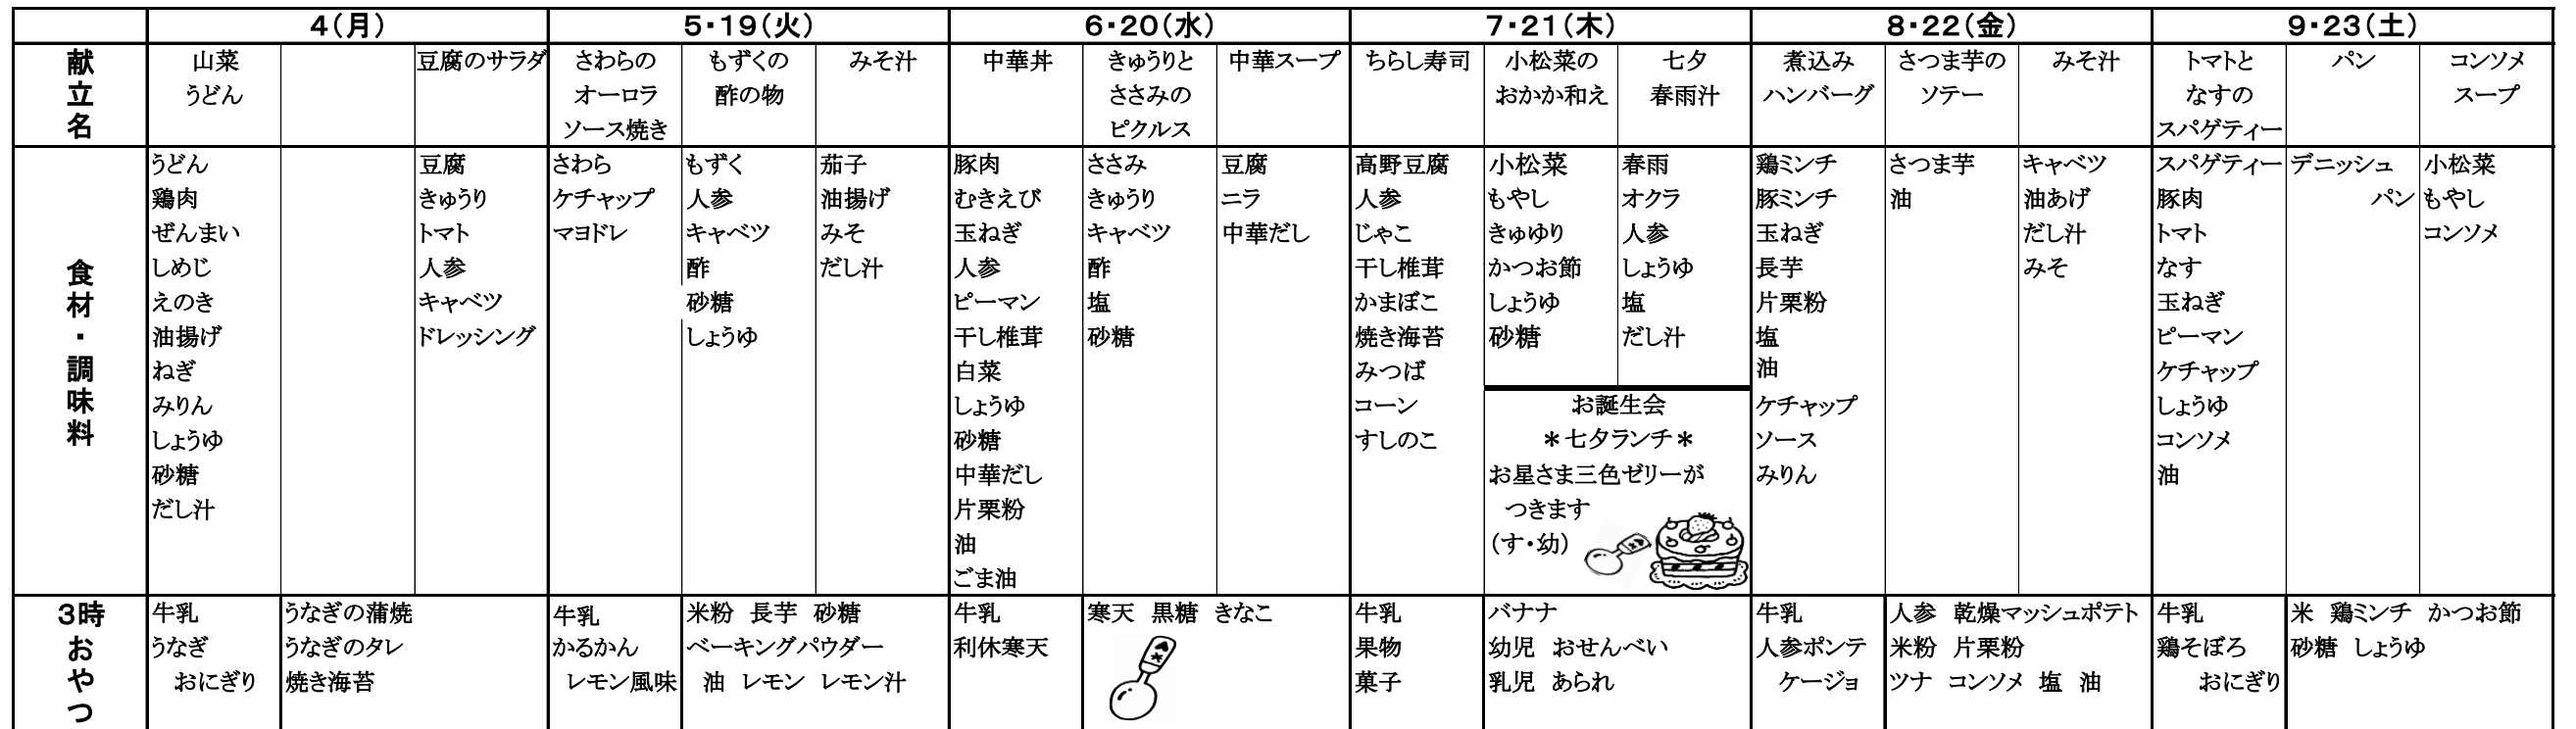 4(月) 5・19(火) 6・20(水) 7・21(木) 8・22(金) 9・23(土)
献立名
山菜
うどん
豆腐のサラダ
さわらの
オーロラ
ソース焼き
もずくの
酢の物
みそ汁
中華丼
きゅうりと
ささみの
ピクルス
中華スープ
ちらし寿司
小松菜の
おかか和え
七夕
春雨汁
煮込み
ハンバーグ
さつま芋の
ソテー
みそ汁
トマトと
なすの
スパゲティー
パン
コンソメ
スープ
食材・調味料
うどん
鶏肉
ぜんまい
しめじ
えのき
油揚げ
ねぎ
みりん
しょうゆ
砂糖
だし汁
豆腐
きゅうり
トマト
人参
キャベツ
ドレッシング
さわら
ケチャップ
マヨドレ
もずく
人参
キャベツ
酢
砂糖
しょうゆ
茄子
油揚げ
みそ
だし汁
豚肉
むきえび
玉ねぎ
人参
ピーマン
干し椎茸
白菜
しょうゆ
砂糖
中華だし
片栗粉
油
ごま油
ささみ
きゅうり
キャベツ
酢
塩
砂糖
豆腐
ニラ
中華だし
高野豆腐
人参
じゃこ
干し椎茸
かまぼこ
焼き海苔
みつば
コーン
すしのこ
小松菜
もやし
きゅゆり
かつお節
しょうゆ
砂糖
春雨
オクラ
人参
しょうゆ
塩
だし汁
お誕生会
＊七夕ランチ＊
お星さま三色ゼリーが
つきます
(す・幼)
鶏ミンチ
豚ミンチ
玉ねぎ
長芋
片栗粉
塩
油
ケチャップ
ソース
みりん
さつま芋
油
キャベツ
油あげ
だし汁
みそ
スパゲティー
豚肉
トマト
なす
玉ねぎ
ピーマン
ケチャップ
しょうゆ
コンソメ
油
デニッシュ
パン
小松菜
もやし
コンソメ
3時
おやつ
牛乳
うなぎ
おにぎり
うなぎの蒲焼
うなぎのタレ
焼き海苔
牛乳
かるかん
レモン風味
米粉 長芋 砂糖
ベーキングパウダー
油 レモン レモン汁
牛乳
利休寒天
寒天 黒糖 きなこ
牛乳
果物
菓子
バナナ
幼児 おせんべい
乳児 あられ
牛乳
人参ポンテ
ケージョ
人参 乾燥マッシュポテト
米粉 片栗粉
ツナ コンソメ 塩 油
牛乳
鶏そぼろ
おにぎり
米 鶏ミンチ かつお節
砂糖 しょうゆ